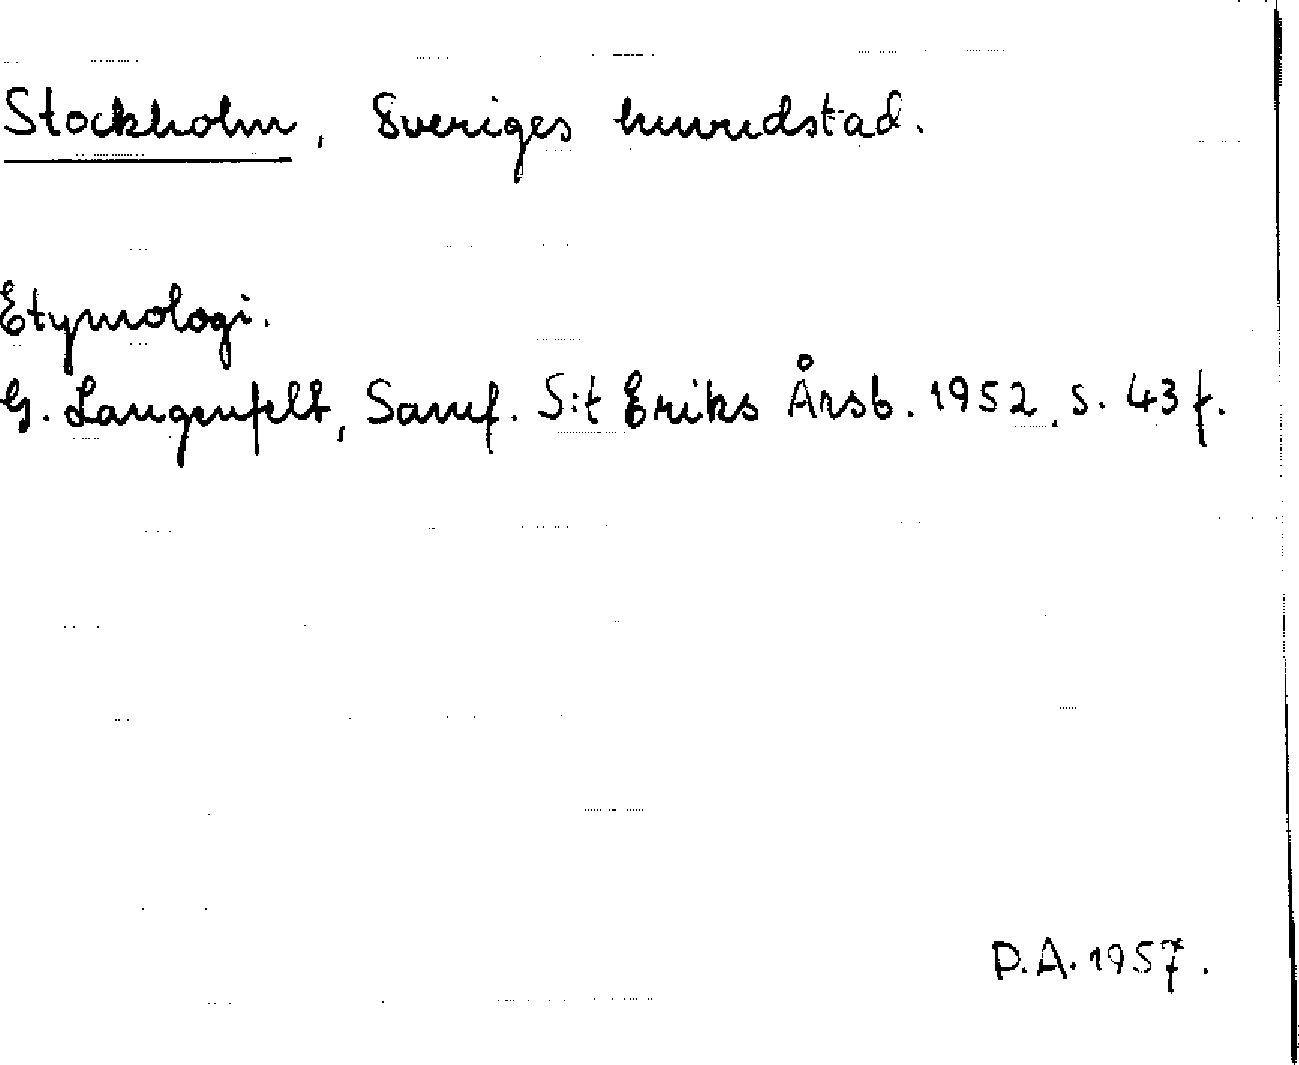 Stockholm, Sveriges huvudstad.
Etymologi.
G. Langenfelt, Samf. S:t Eriks Årsb. 1952, s. 43 f.
D.A. 1957.